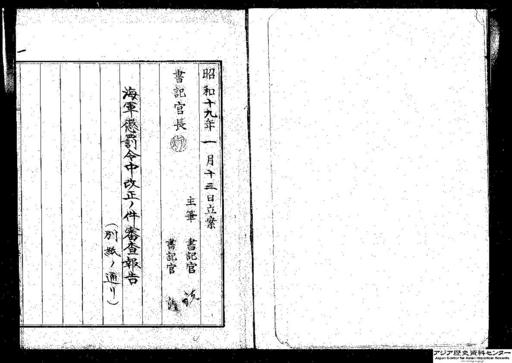 昭和十九年一月十三日立案
書記官長
主筆 書記官
書記官
海軍懲罰令中改正ノ件審査報告
(別紙ノ通リ)
アジア歴史資料センター
Japan Center for Asian Historical Records